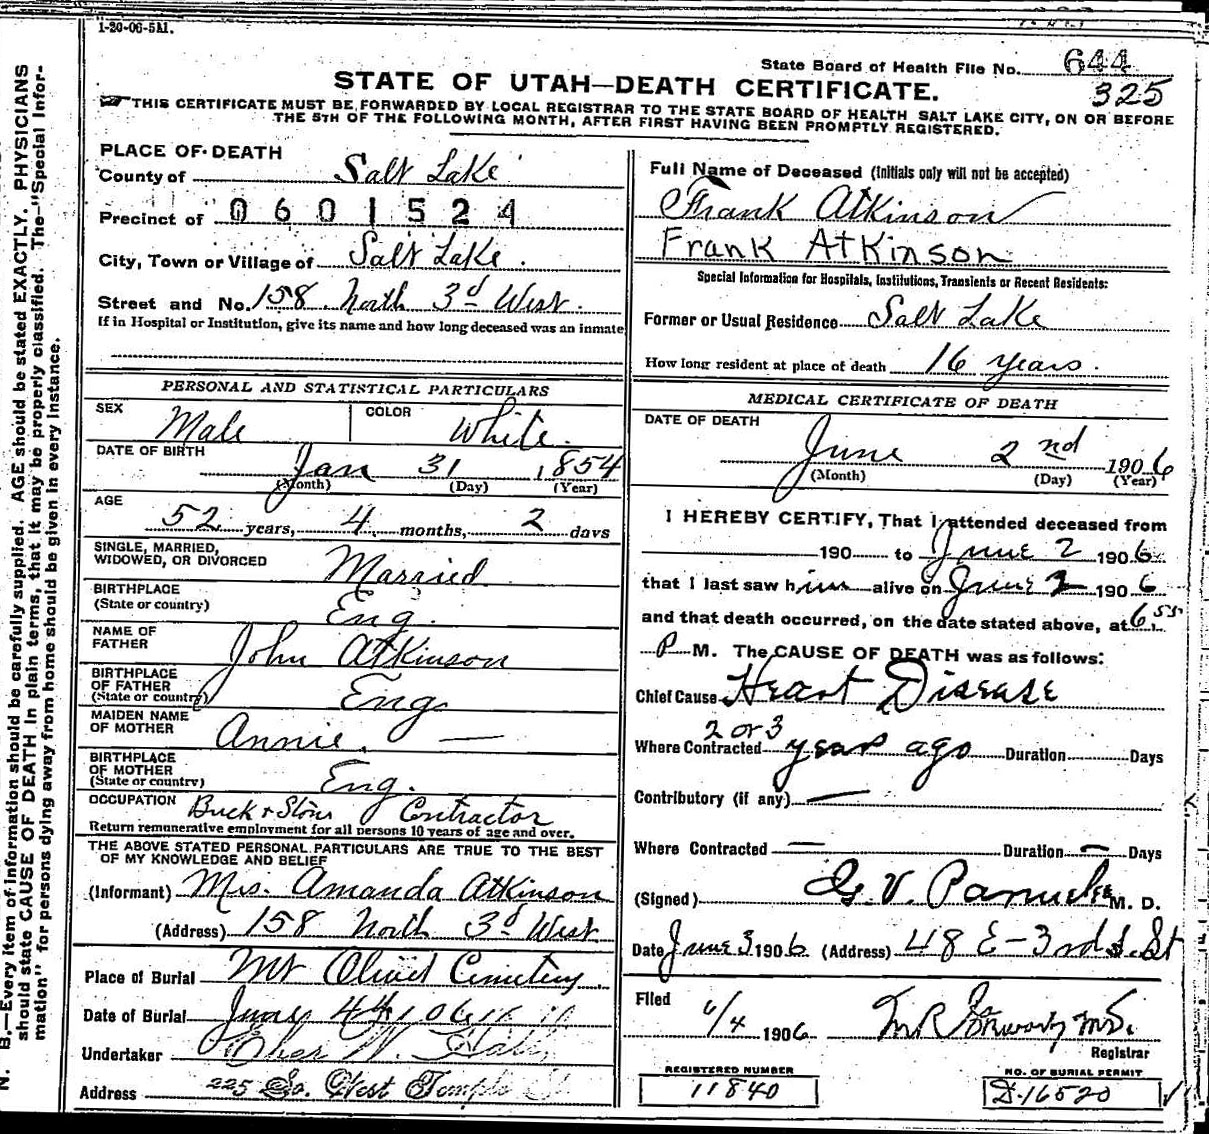 1-20-06-5M.
State Board of Health File No. 644
325
STATE OF UTAH—DEATH CERTIFICATE.
THIS CERTIFICATE MUST BE FORWARDED BY LOCAL REGISTRAR TO THE STATE BOARD OF HEALTH SALT LAKE CITY, ON OR BEFORE
THE 5TH OF THE FOLLOWING MONTH, AFTER FIRST HAVING BEEN PROMPTLY REGISTERED.
N. B.—Every item of information should be carefully supplied. AGE should be stated EXACTLY. PHYSICIANS
should state CAUSE OF DEATH in plain terms, that it may be properly classified. The "Special Infor-
mation" for persons dying away from home should be given in every instance.
PLACE OF DEATH
County of Salt Lake
Precinct of 0601524
City, Town or Village of Salt Lake.
Street and No. 158 North 3d West.
If in Hospital or Institution, give its name and how long deceased was an inmate
PERSONAL AND STATISTICAL PARTICULARS
SEX Male
COLOR White.
DATE OF BIRTH
Jan 31 1854
(Month) (Day) (Year)
AGE
52 years, 4 months, 2 days
SINGLE, MARRIED,
WIDOWED, OR DIVORCED Married
BIRTHPLACE
(State or country) Eng.
NAME OF
FATHER John Atkinson
BIRTHPLACE
OF FATHER
(State or country) Eng.
MAIDEN NAME
OF MOTHER Annie. —
BIRTHPLACE
OF MOTHER
(State or country) Eng.
OCCUPATION Contractor
Return remunerative employment for all persons 10 years of age and over.
THE ABOVE STATED PERSONAL PARTICULARS ARE TRUE TO THE BEST
OF MY KNOWLEDGE AND BELIEF
(Informant) Mrs. Amanda Atkinson
(Address) 158 North 3d West
Place of Burial Mt Olivet Cemetery.
Date of Burial June 4
Undertaker
Address 225 So. West Temple St
Full Name of Deceased (Initials only will not be accepted)
Frank Atkinson
Frank Atkinson
Special Information for Hospitals, Institutions, Transients or Recent Residents:
Former or Usual Residence Salt Lake
How long resident at place of death 16 years.
MEDICAL CERTIFICATE OF DEATH
DATE OF DEATH
June 2nd 1906
(Month) (Day) (Year)
I HEREBY CERTIFY, That I attended deceased from
190 to June 2 1906
that I last saw him alive on June 2 1906
and that death occurred, on the date stated above, at 6.55
P M. The CAUSE OF DEATH was as follows:
Chief Cause Heart Disease
2 or 3
Where Contracted years ago Duration Days
Contributory (if any) —
Where Contracted — Duration — Days
(Signed) G. V. M. D.
Date June 3 1906 (Address) 48 E-3rd S. St
Filed 6/4 1906 M.D.
Registrar
REGISTERED NUMBER
11840
NO. OF BURIAL PERMIT
D-16520